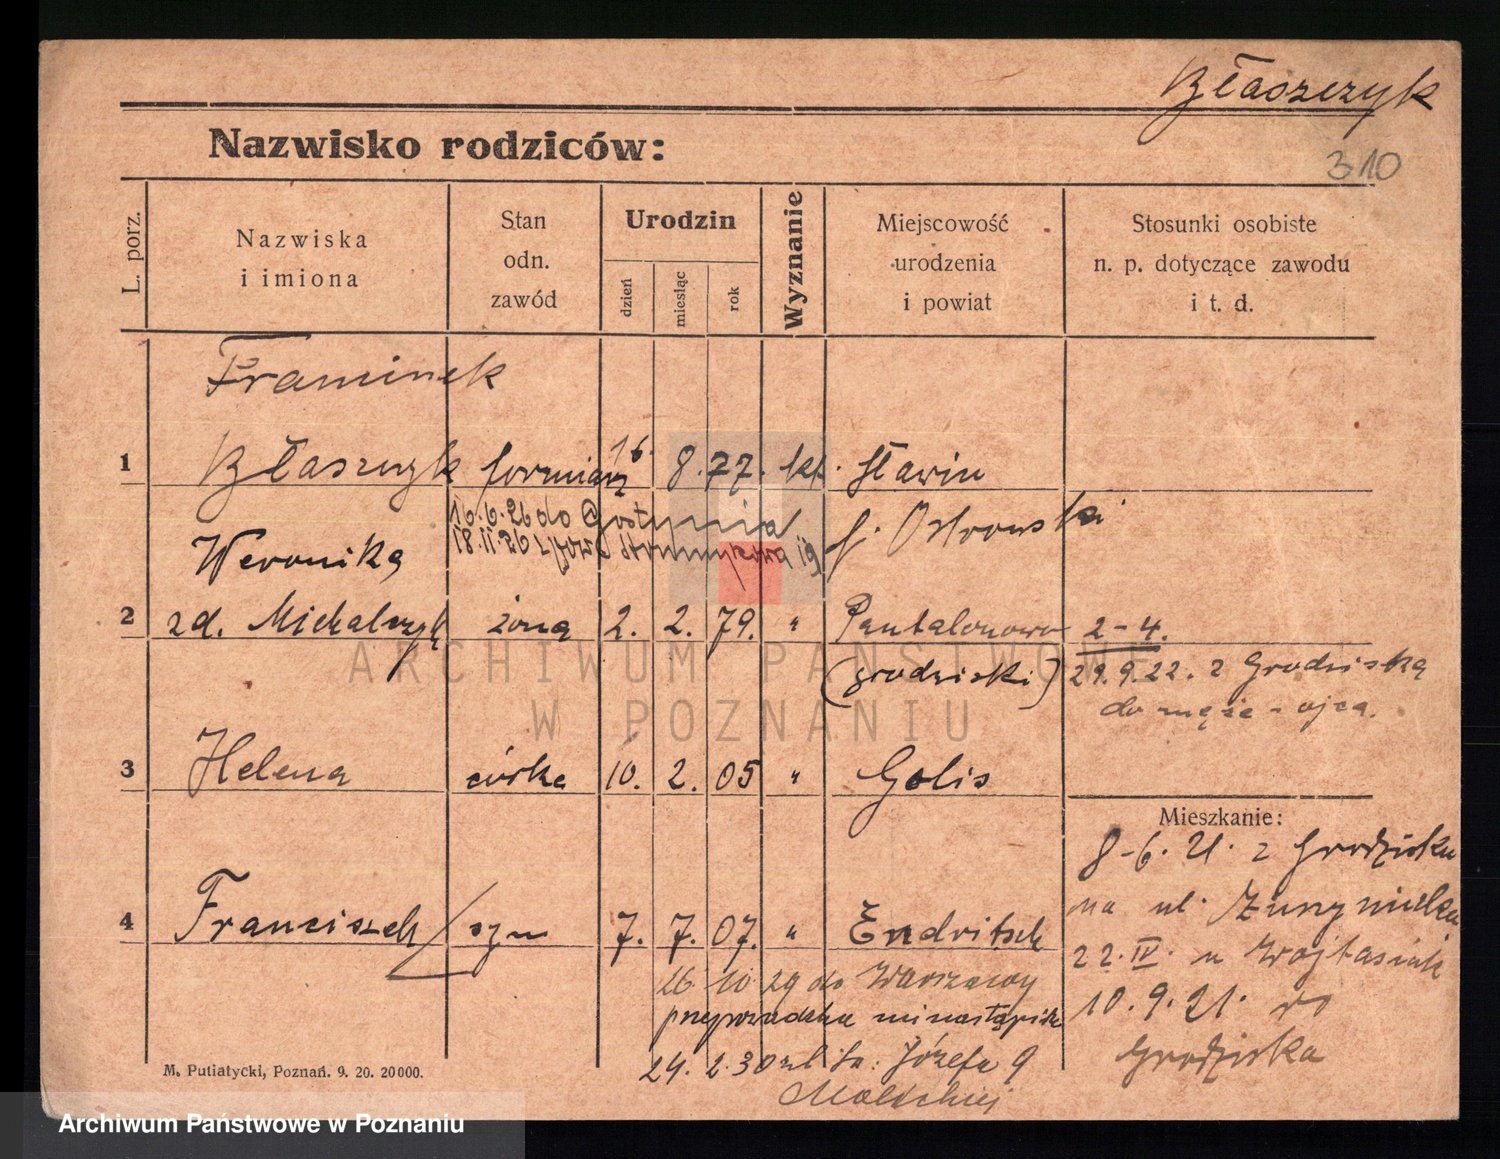 Błaszczyk
Nazwisko rodziców:
310
L. porz.
Nazwiska
i imiona
Stan
odn.
zawód
Urodzin
dzień
miesiąc
rok
Wyznanie
Miejscowość
urodzenia
i powiat
Stosunki osobiste
n. p. dotyczące zawodu
i t. d.
1 Błaszczyk 16. 8. 77. kt.
16.6.26 do Gostynia
18.11.26
Weronika
2 zd. Michalczyk żona 2. 2. 79. " Pantalonowo 2-4.
(grodziski) 29.9.22. z Grodziska
do męża - ojca.
3 Helena córka 10. 2. 05 " Golis
Mieszkanie:
8-6. 21. z Grodziska
na ul.
4 Franciszek syn 7. 7. 07. " Endritsch
22. IV. u Wojtasiak
26 10 29 do Warszawy
10. 9. 21. do
Grodziska
24. 2. 30 ul św. Józefa 9
M. Putiatycki, Poznań. 9. 20. 20000.
ARCHIWUM PAŃSTWOWE
W POZNANIU
Archiwum Państwowe w Poznaniu